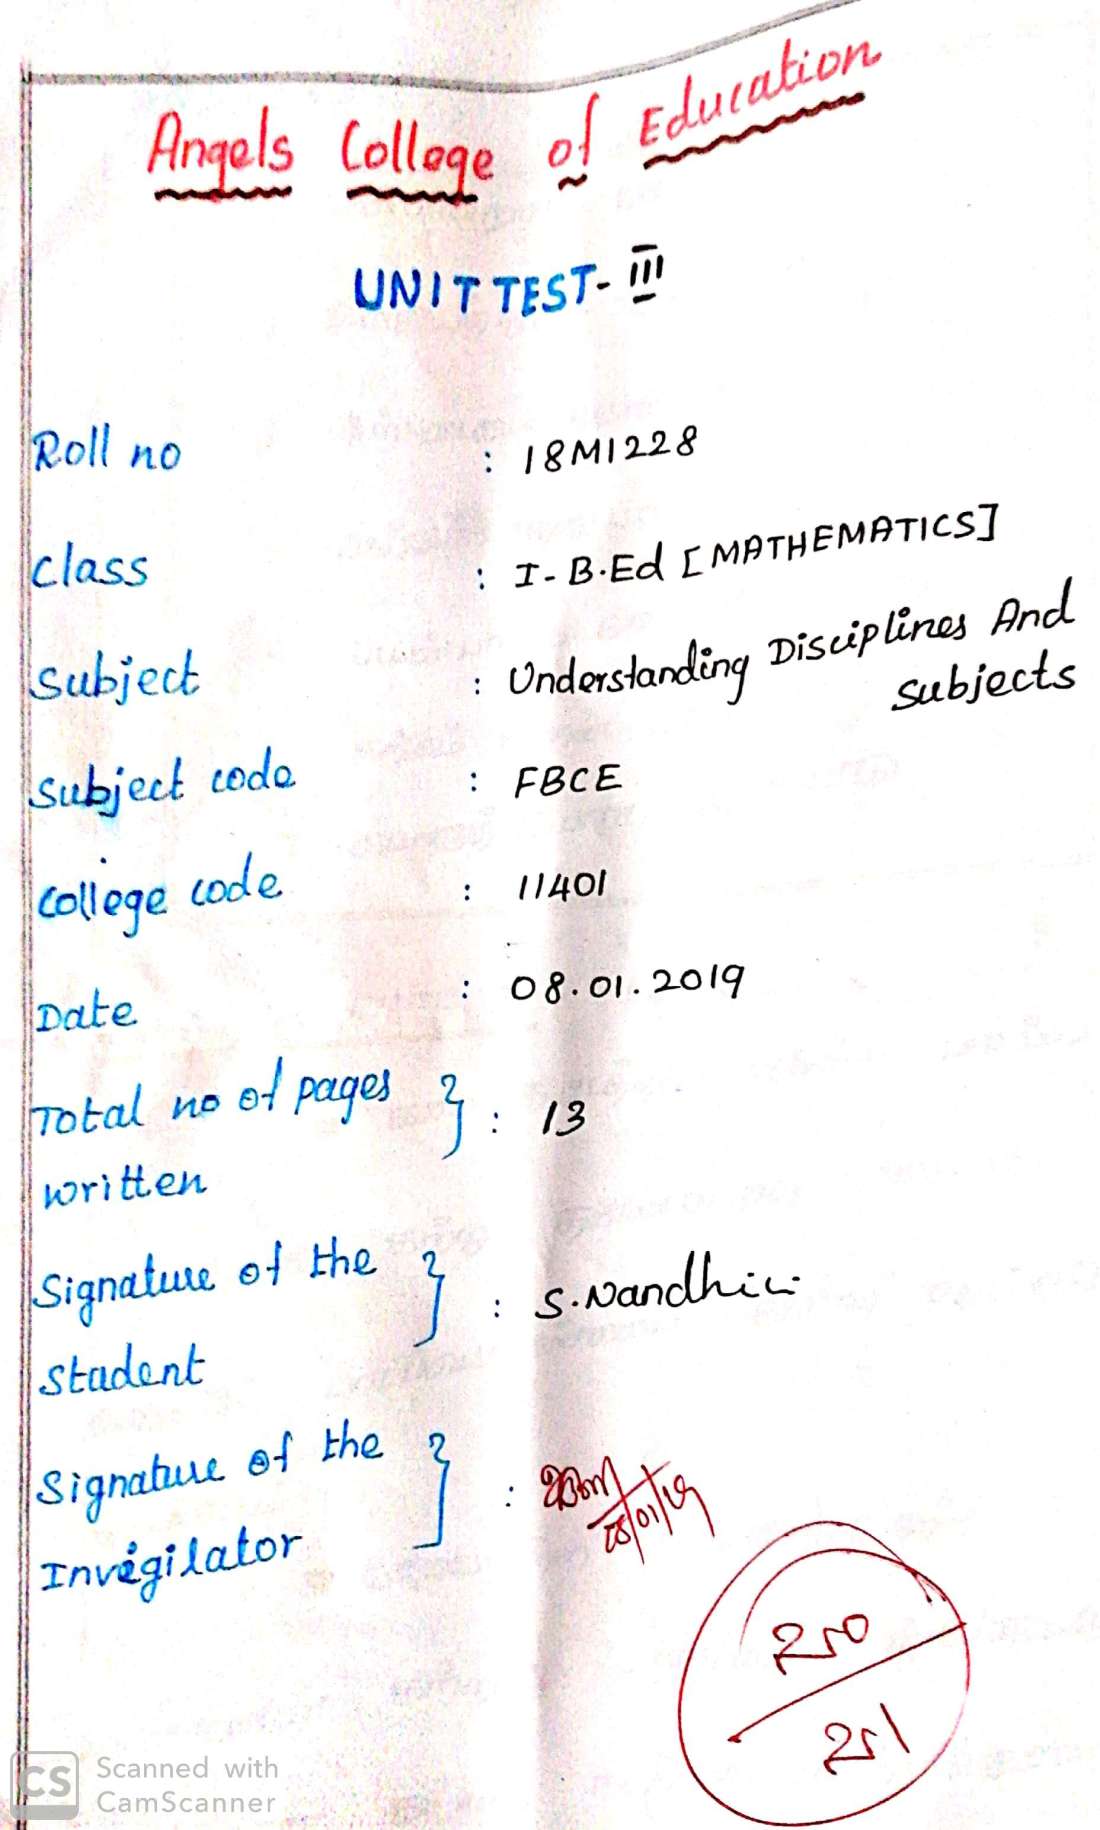 Angels College of Education
UNIT TEST- III
Roll no : 18M1228
Class : I- B.Ed [MATHEMATICS]
Subject : Understanding Disciplines And
Subjects
Subject code : FBCE
College code : 11401
Date : 08.01.2019
Total no of pages } : 13
written
Signature of the } : S.Nandhini
Student
Signature of the } :
Invigilator
08/01/19
CS Scanned with
CamScanner